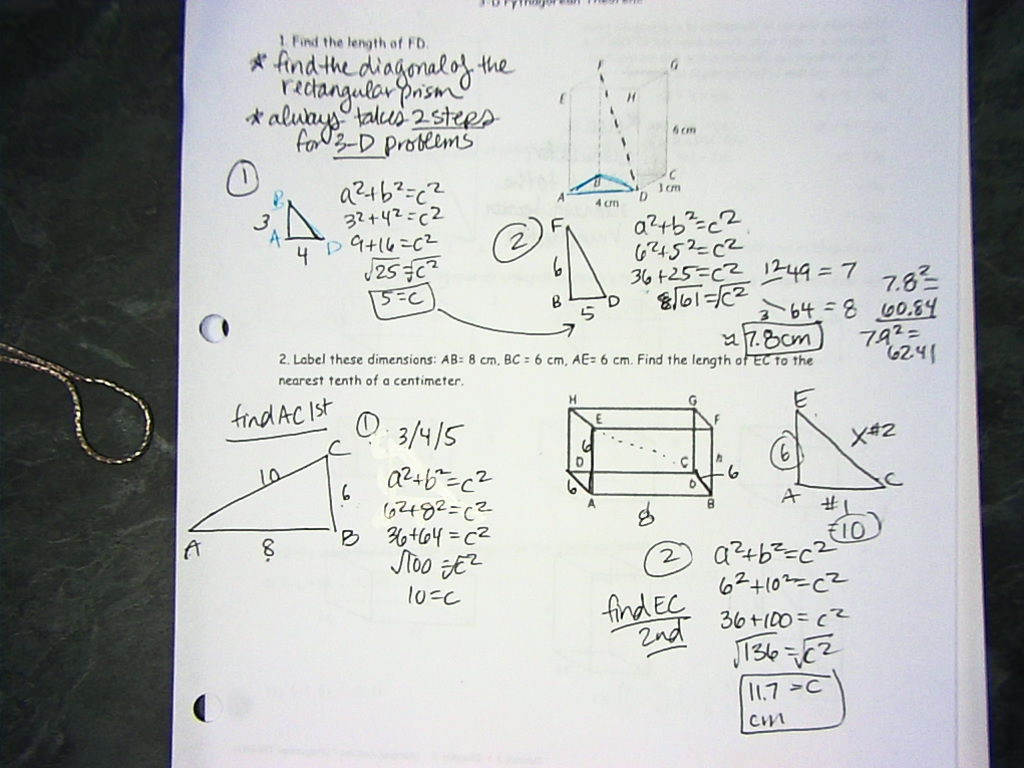 3-D Pythagorean Theorem
1. Find the length of FD.
* find the diagonal of the
rectangular prism
* always takes 2 steps
for 3-D problems
F
G
E
H
6 cm
B
C
A
D
3 cm
4 cm
①
B
3
A
4
D
a²+b²=c²
3²+4²=c²
9+16=c²
√25=√c²
5=c
②
F
6
B
D
5
a²+b²=c²
6²+5²=c²
36+25=c²
√61=√c²
≈ 7.8cm
12 49 = 7
3 64 = 8
7.8²=
60.84
7.9²=
62.41
2. Label these dimensions: AB= 8 cm, BC = 6 cm, AE= 6 cm. Find the length of EC to the
nearest tenth of a centimeter.
find AC 1st
10
C
6
A
8
B
①
3/4/5
a²+b²=c²
6²+8²=c²
36+64=c²
√100=√c²
10=c
H
G
E
F
6
D
C
6
6
A
B
8
E
6
x #2
A
C
#1
=10
②
find EC
2nd
a²+b²=c²
6²+10²=c²
36+100=c²
√136=√c²
11.7=c
cm